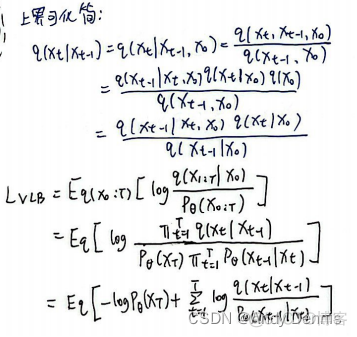 上界可优简:
q(xt|xt-1) = q(xt|xt-1, x0) = q(xt, xt-1, x0) / q(xt-1, x0)
= q(xt-1|xt, x0) q(xt|x0) q(x0) / q(xt-1, x0)
= q(xt-1|xt, x0) q(xt|x0) / q(xt-1|x0)
LVLB = Eq(x0:T) [ log q(x1:T|x0) / Pθ(x0:T) ]
= Eq [ log Πᵀt=1 q(xt|xt-1) / Pθ(xT) Πᵀt=1 Pθ(xt-1|xt) ]
= Eq [ -log Pθ(xT) + Σᵀt=1 log q(xt|xt-1) / Pθ(xt-1|xt) ]
CSDN